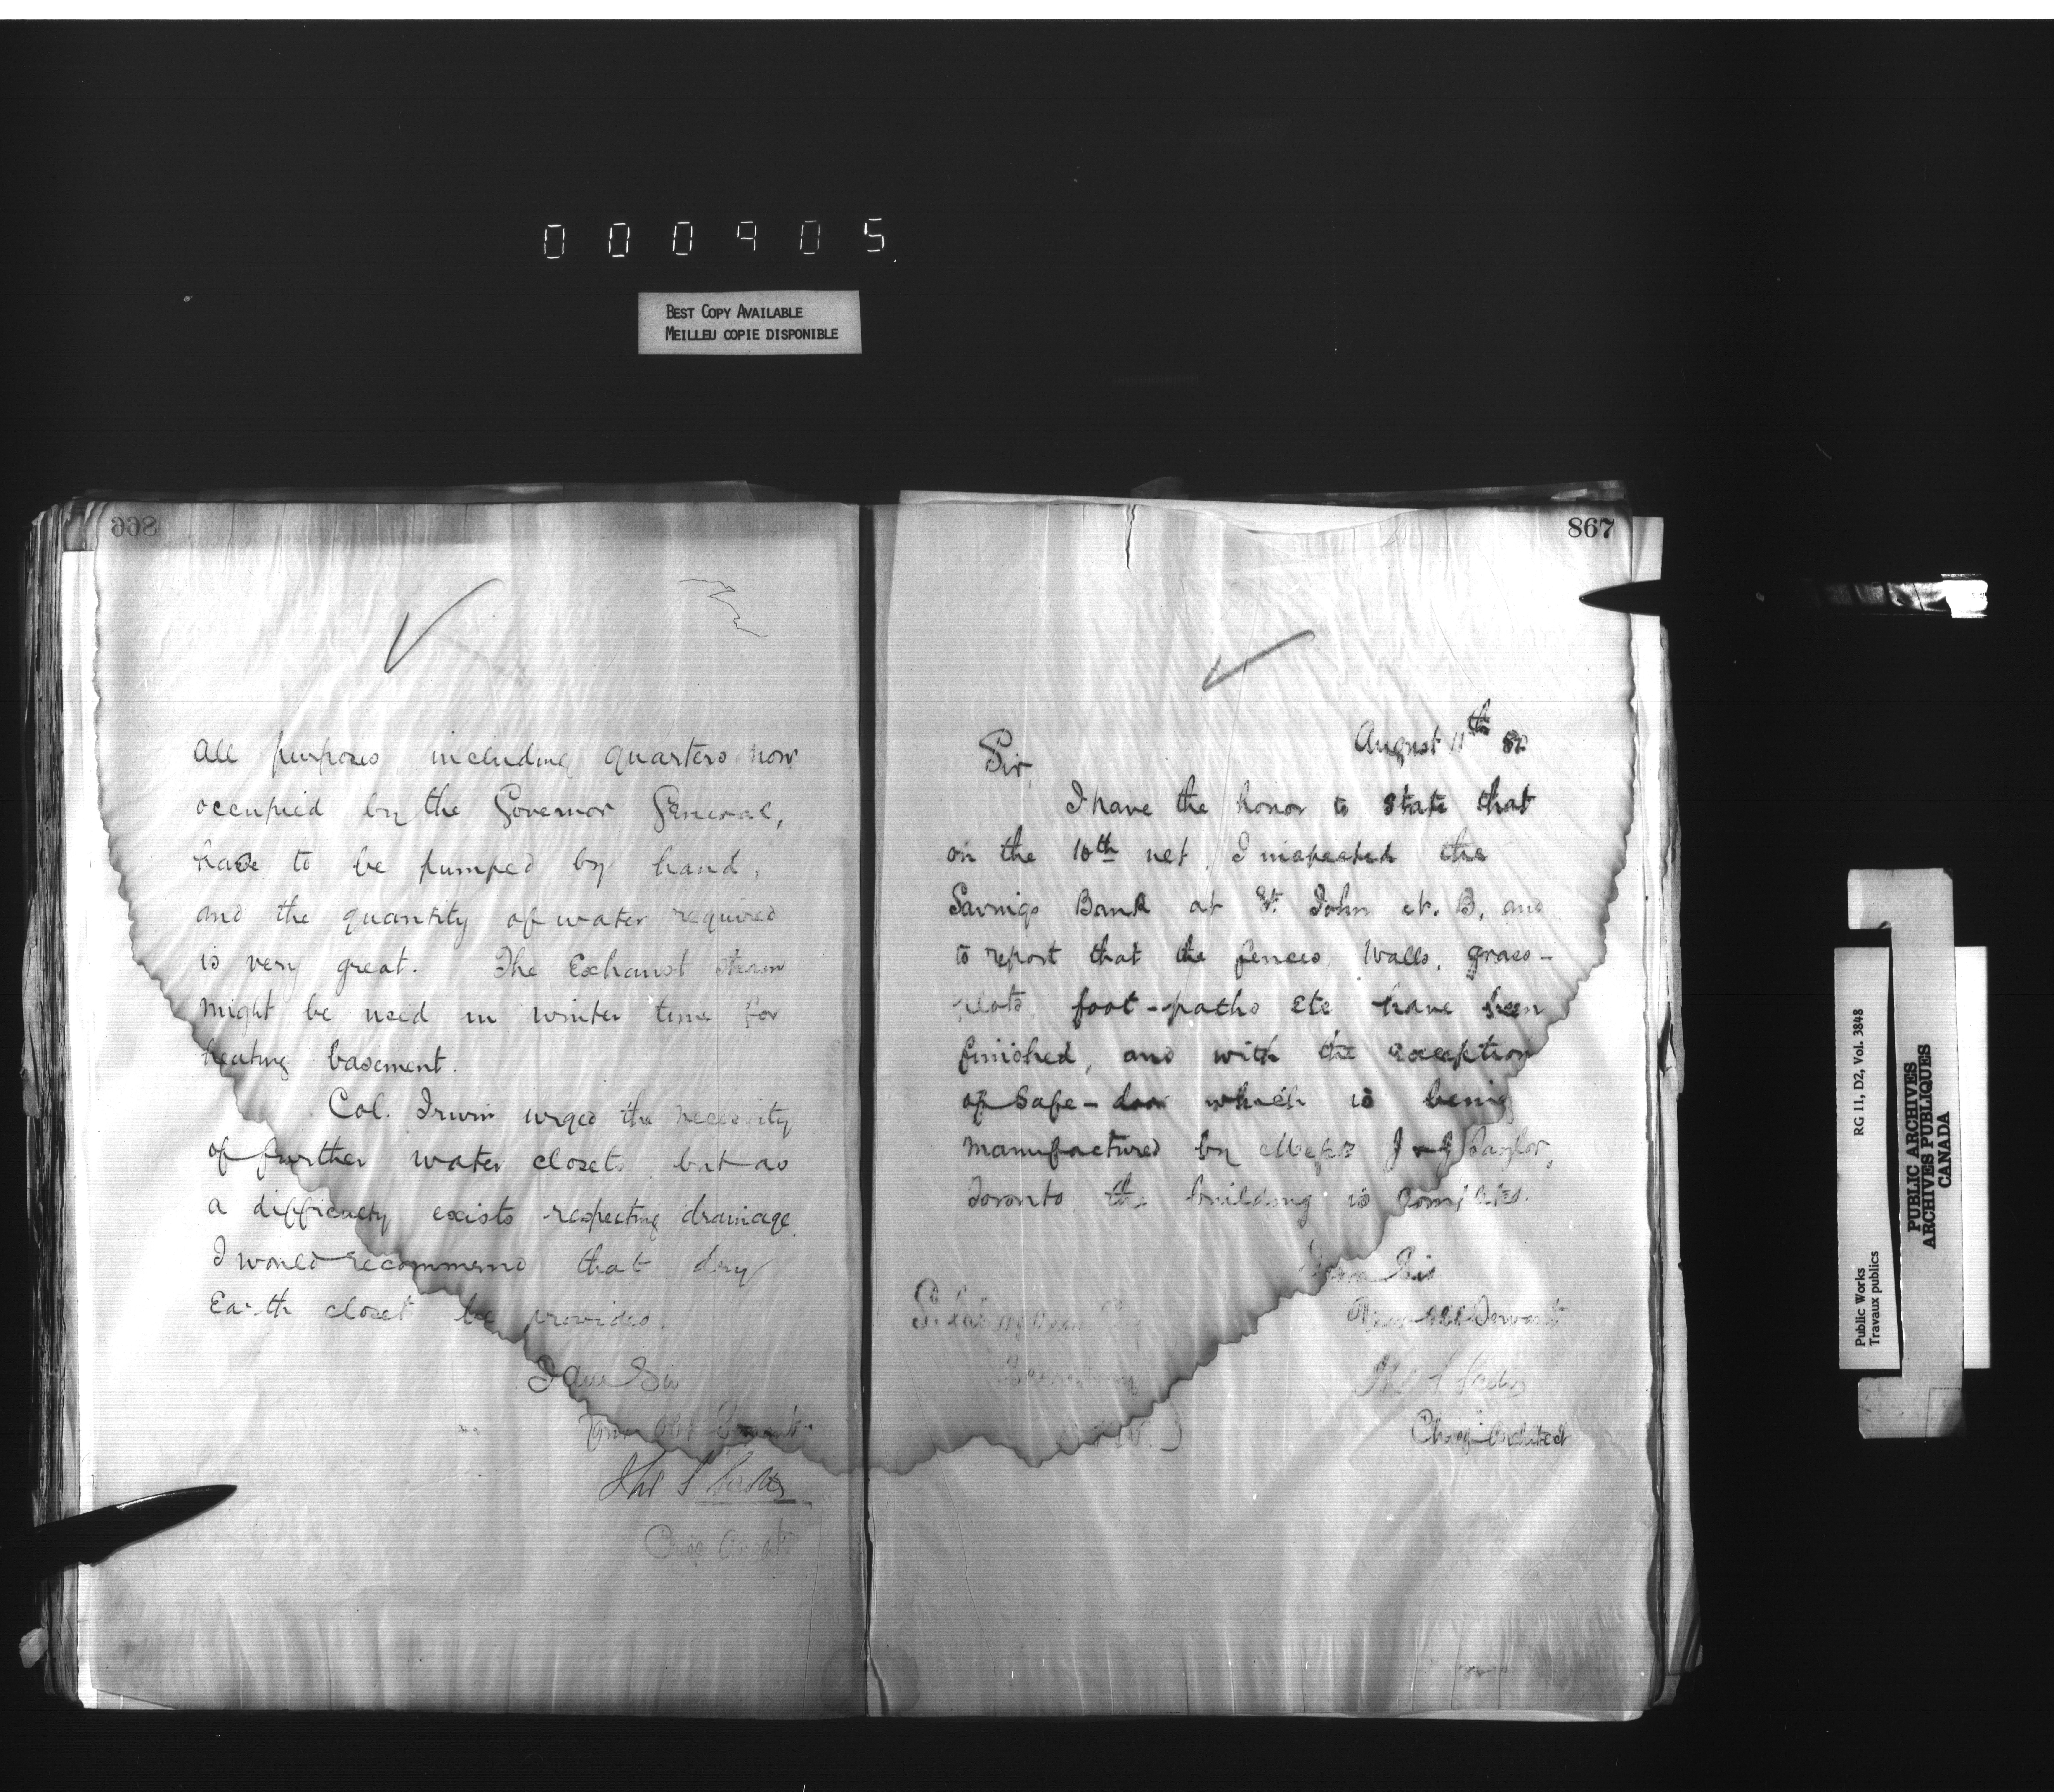 000905
BEST COPY AVAILABLE
MEILLEU COPIE DISPONIBLE
866
all purposes including quarters now
occupied by the Governor General,
have to be pumped by hand,
and the quantity of water required
is very great. The Exhaust steam
might be used in winter time for
heating basement.
Col. Irwin urged the necessity
of further water closets but as
a difficulty exists respecting drainage
I would recommend that dry
Earth closet be provided.
I am Sir
Your Obt Servant
Thos S Scott
Chief Archt
867
August 11th 82
Sir,
I have the honor to state that
on the 10th inst, I inspected the
Savings Bank at St. John N. B. and
to report that the fences, walls, grass-
plots, foot-paths etc have been
finished, and with the exception
of Safe-door which is being
manufactured by Messrs J & J Taylor,
Toronto the building is completed.
I am Sir
Your Obt Servant
Thos S Scott
Chief Architect
Public Works
Travaux publics
RG 11, D2, Vol. 3848
PUBLIC ARCHIVES
ARCHIVES PUBLIQUES
CANADA